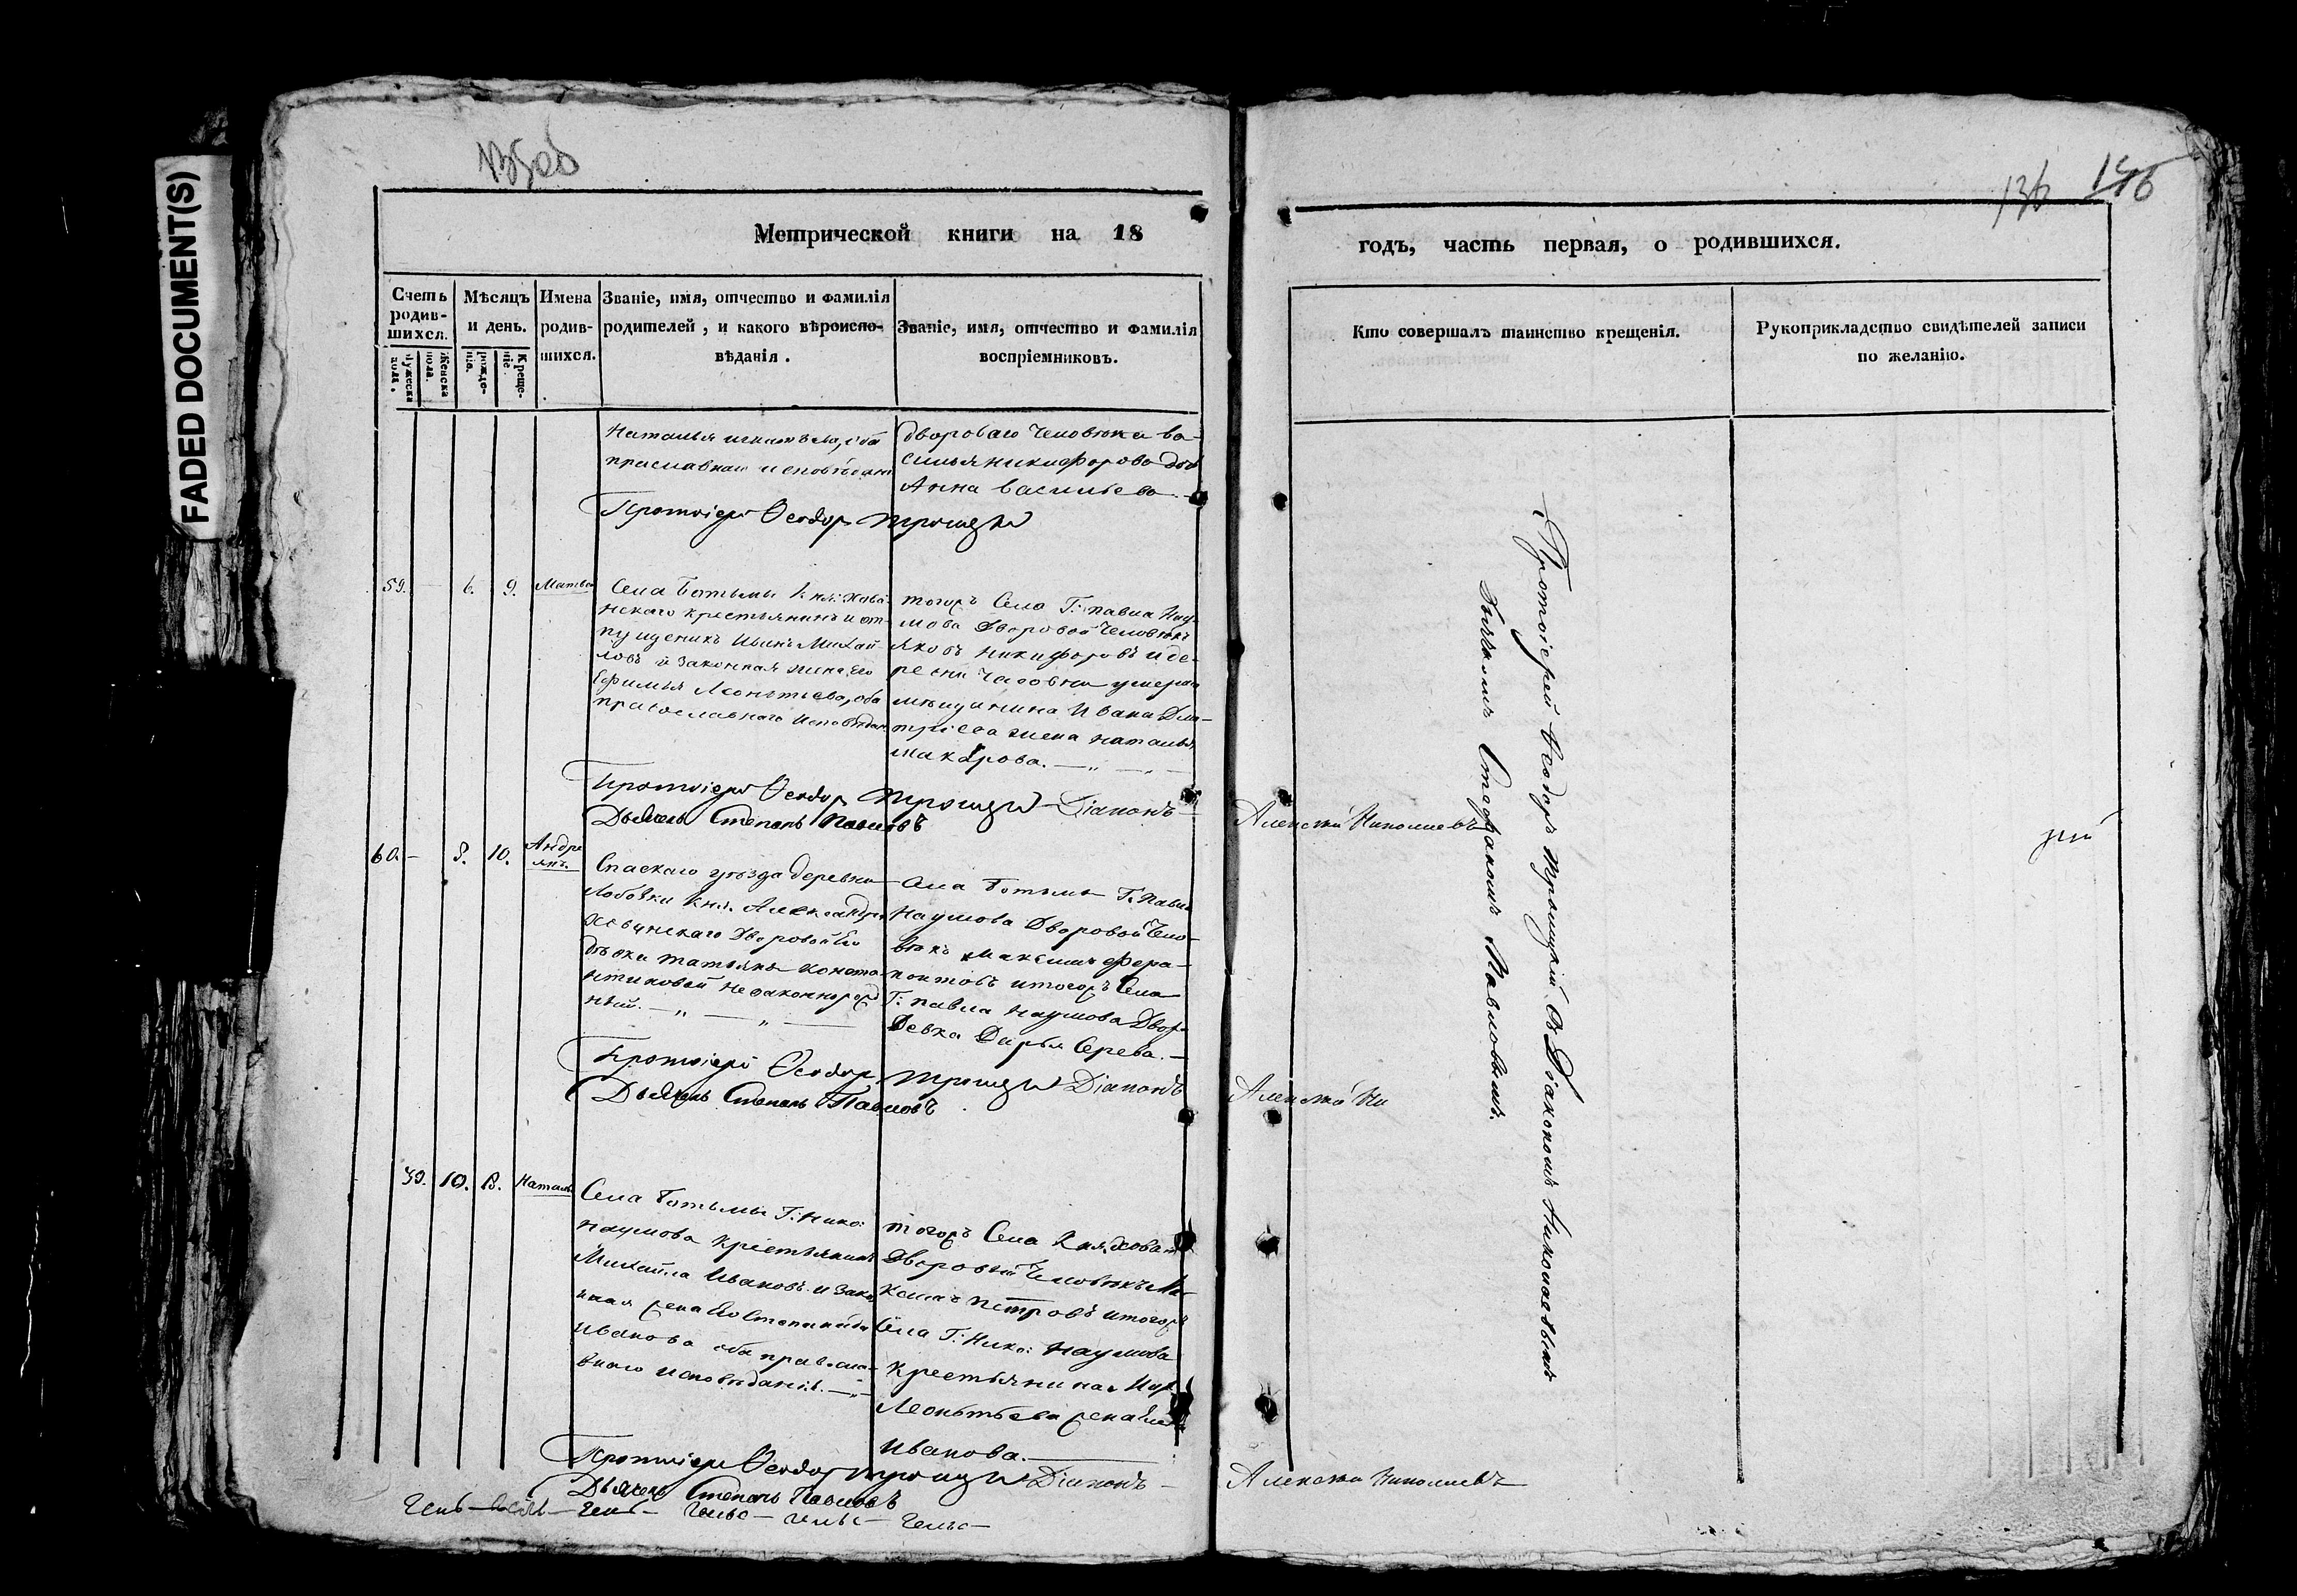 FADED DOCUMENT(S)
135об
136 146
Метрической книги на 18
годъ, часть первая, о родившихся.
Счетъ родив-шихся.
Мужеска пола.
Женска пола.
Мѣсяцъ и день.
рожде-нія.
Креще-ніе.
Имена родив-шихся.
Званіе, имя, отчество и фамилія
родителей, и какого вѣроиспо-
вѣданія.
Званіе, имя, отчество и фамилія
воспріемниковъ.
Кто совершалъ таинство крещенія.
Рукоприкладство свидѣтелей записи
по желанію.
Наталья оба
двороваго Человѣка Ва-
силья Никифорова
Анна Васильева
Протоіерей Ѳеодоръ Троицкій
59. — 6. 9. Матвей
Села Ботьмы Кня: Хова-
нскаго крестьянинъ и от-
пущеникъ Иванъ Михай-
ловъ и законная жена его
Ефимья Леонтьева, оба
православнаго исповѣдан.
тогожъ Села Г: Павла Нау-
мова Дворовой Человѣкъ
Яковъ Никифоровъ и де-
ревни умерша
мѣщанина Ивана Дми-
тріева жена Наталья
Макарова. — „ — „ —
Протоіерей Ѳеодоръ Троицкій Діаконъ
Алексей Николаевъ
Дьячекъ Степанъ Павловъ
60. — 8. 10. Андре
янъ.
Спаскаго уѣзда деревни
Лобовки Кня. Александра
Хованскаго Дворовой Его
дѣвки Татьяны Конста-
нтиновой незаконнорожд
ный. — „ — „ —
Села Ботьмы Г. Павла
Наумова Дворовой Чело-
вѣкъ Максимъ Фера-
понтовъ и тогожъ Села
Г: Павла Наумова Двор.
Девка Дарья
Протоіерей Ѳеодоръ Троицкій Діаконъ
Алексей Ни
Дьячекъ Степанъ Павловъ
39. 10. 13. Наталья
Села Ботьмы Г: Нико:
Наумова Крестьянинъ
Михайла Ивановъ и зако-
нная жена Его Степанида
Иванова оба правосла-
внаго исповѣданія. — „ —
тогожъ Села Кня. Хованс
Дворовый Человѣкъ Ма-
ксимъ Петровъ и тогожъ
Села Г: Нико: Наумова
Крестьянина
Леонтьева жена
Иванова.
Протоіерей Ѳеодоръ Троицкій Діаконъ
Алексей Николаевъ
Дьячекъ Степанъ Павловъ
Протоіерей Ѳеодоръ Троицкій съ Діакономъ Николаевымъ
Дьячкомъ Стефаномъ Павловымъ.